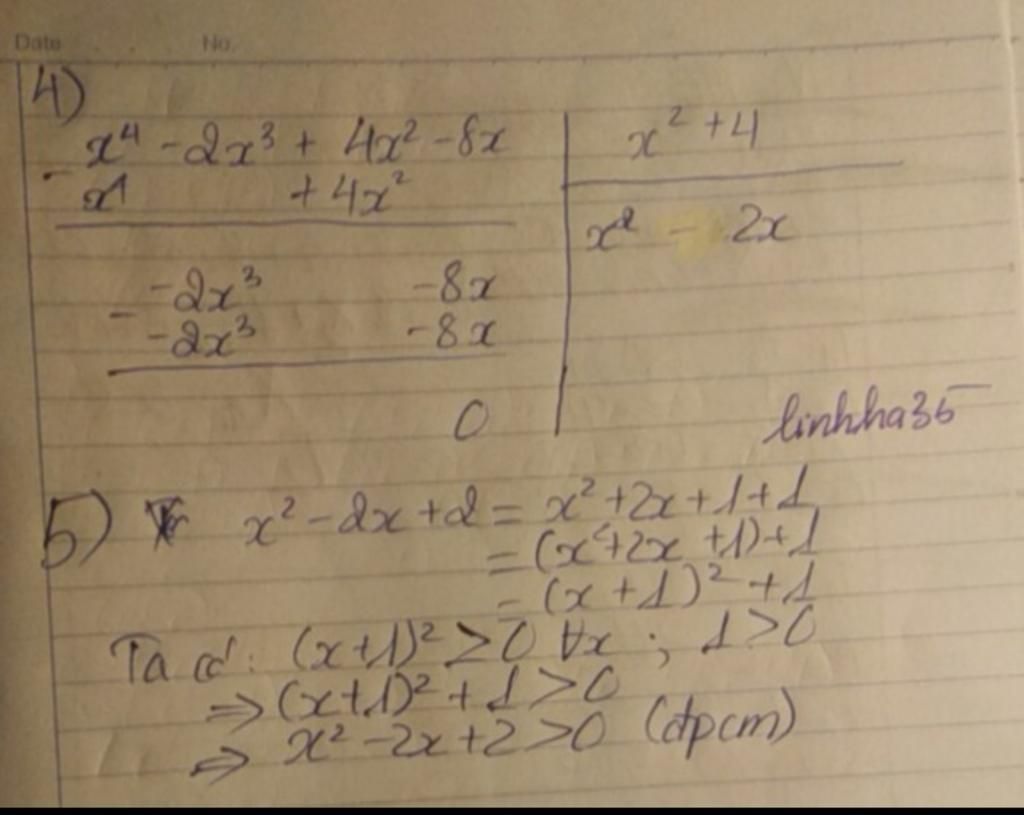 Date . . No.
4)
- x⁴ - 2x³ + 4x² - 8x | x² + 4
x⁴ + 4x²
x² - 2x
- -2x³ -8x
-2x³ -8x
0
linhha35
5) x² - 2x + 2 = x² + 2x + 1 + 1
= (x² + 2x + 1) + 1
= (x + 1)² + 1
Ta có: (x+1)² ≥ 0 ∀x ; 1 > 0
⇒ (x+1)² + 1 > 0
⇒ x² - 2x + 2 > 0 (đpcm)